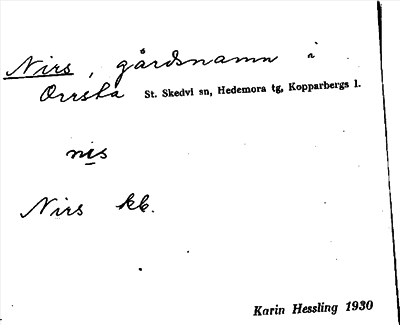 Nirs, gårdsnamn i
Orrsta St. Skedvi sn, Hedemora tg, Kopparbergs l.
nis
Nirs kb.
Karin Hessling 1930